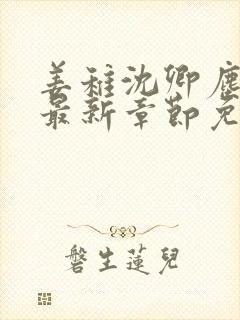 姜稚沈卿塵
最新章節免
磐生蓮兒